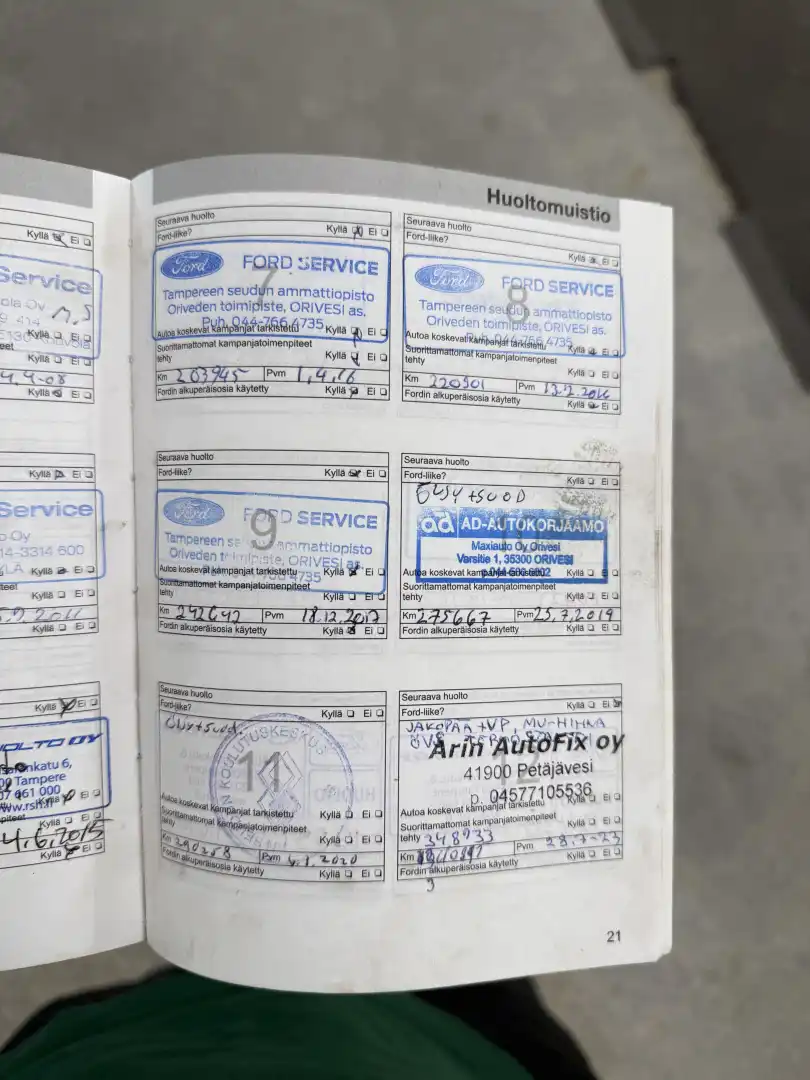 Kyllä Ei
Service
Kyllä Ei
Kyllä Ei
4.4-08
Kyllä Ei
Kyllä Ei
Service
Oy
14-3314 600
Kyllä Ei
Kyllä Ei
Kyllä Ei
Kyllä Ei
OY
Tampere
Kyllä Ei
Kyllä Ei
4.6.2015
Kyllä Ei
Huoltomuistio
Seuraava huolto
Ford-liike? Kyllä Ei
7
Ford FORD SERVICE
Tampereen seudun ammattiopisto
Oriveden toimipiste, ORIVESI as.
Puh. 044-766 4735
Autoa koskevat kampanjat tarkistettu Kyllä Ei
Suorittamattomat kampanjatoimenpiteet
tehty Kyllä Ei
Km 203945 Pvm 1.4.16
Fordin alkuperäisosia käytetty Kyllä Ei
Seuraava huolto
Ford-liike? Kyllä Ei
8
Ford FORD SERVICE
Tampereen seudun ammattiopisto
Oriveden toimipiste, ORIVESI as.
Puh. 044-766 4735
Autoa koskevat kampanjat tarkistettu Kyllä Ei
Suorittamattomat kampanjatoimenpiteet
tehty Kyllä Ei
Km 220901 Pvm
Fordin alkuperäisosia käytetty Kyllä Ei
Seuraava huolto
Ford-liike? Kyllä Ei
9
Ford FORD SERVICE
Tampereen seudun ammattiopisto
Oriveden toimipiste, ORIVESI as.
4735
Autoa koskevat kampanjat tarkistettu Kyllä Ei
Suorittamattomat kampanjatoimenpiteet
tehty Kyllä Ei
Km 242642 Pvm 18.12.2017
Fordin alkuperäisosia käytetty Kyllä Ei
Seuraava huolto
Ford-liike? Kyllä Ei
ad AD-AUTOKORJAAMO
Maxiauto Oy Orivesi
Varsitie 1, 35300 ORIVESI
Autoa koskevat kampanjat tarkistettu Kyllä Ei
Suorittamattomat kampanjatoimenpiteet
tehty Kyllä Ei
Km 275667 Pvm 25.7.2019
Fordin alkuperäisosia käytetty Kyllä Ei
Seuraava huolto
Ford-liike? Kyllä Ei
11
KOULUTUSKESKUS
Autoa koskevat kampanjat tarkistettu
Suorittamattomat kampanjatoimenpiteet Kyllä Ei
tehty Kyllä Ei
Km 290258 Pvm 4.1.2020
Fordin alkuperäisosia käytetty Kyllä Ei
Seuraava huolto
Ford-liike? Kyllä Ei
JAKOPÄÄ +VP, MU-HIHNA
12
Arin AutoFix oy
41900 Petäjävesi
p. 04577105536
Autoa koskevat kampanjat tarkistettu Kyllä Ei
Suorittamattomat kampanjatoimenpiteet
tehty 348933 Kyllä Ei
Km Pvm 28.7-23
Fordin alkuperäisosia käytetty Kyllä Ei
21